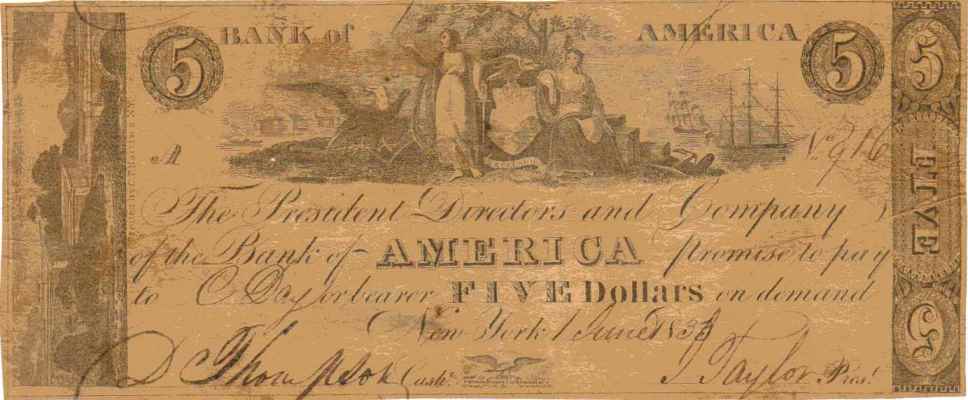 5 BANK of AMERICA 5
A No 916
The President Directors and Company
of the Bank of AMERICA promise to pay
to C Day or bearer FIVE Dollars on demand
New York 1 June 183
D Thompson Cashr. J Taylor Prest.
5
FIVE
5